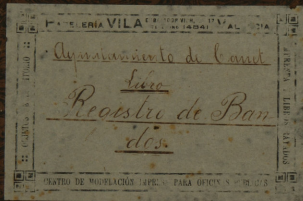 PAPELERÍA VILA
Ayuntamiento de Canet
Libro
Registro de Ban
dos.
CENTRO DE MODELACIÓN IMPRESA PARA OFICINAS